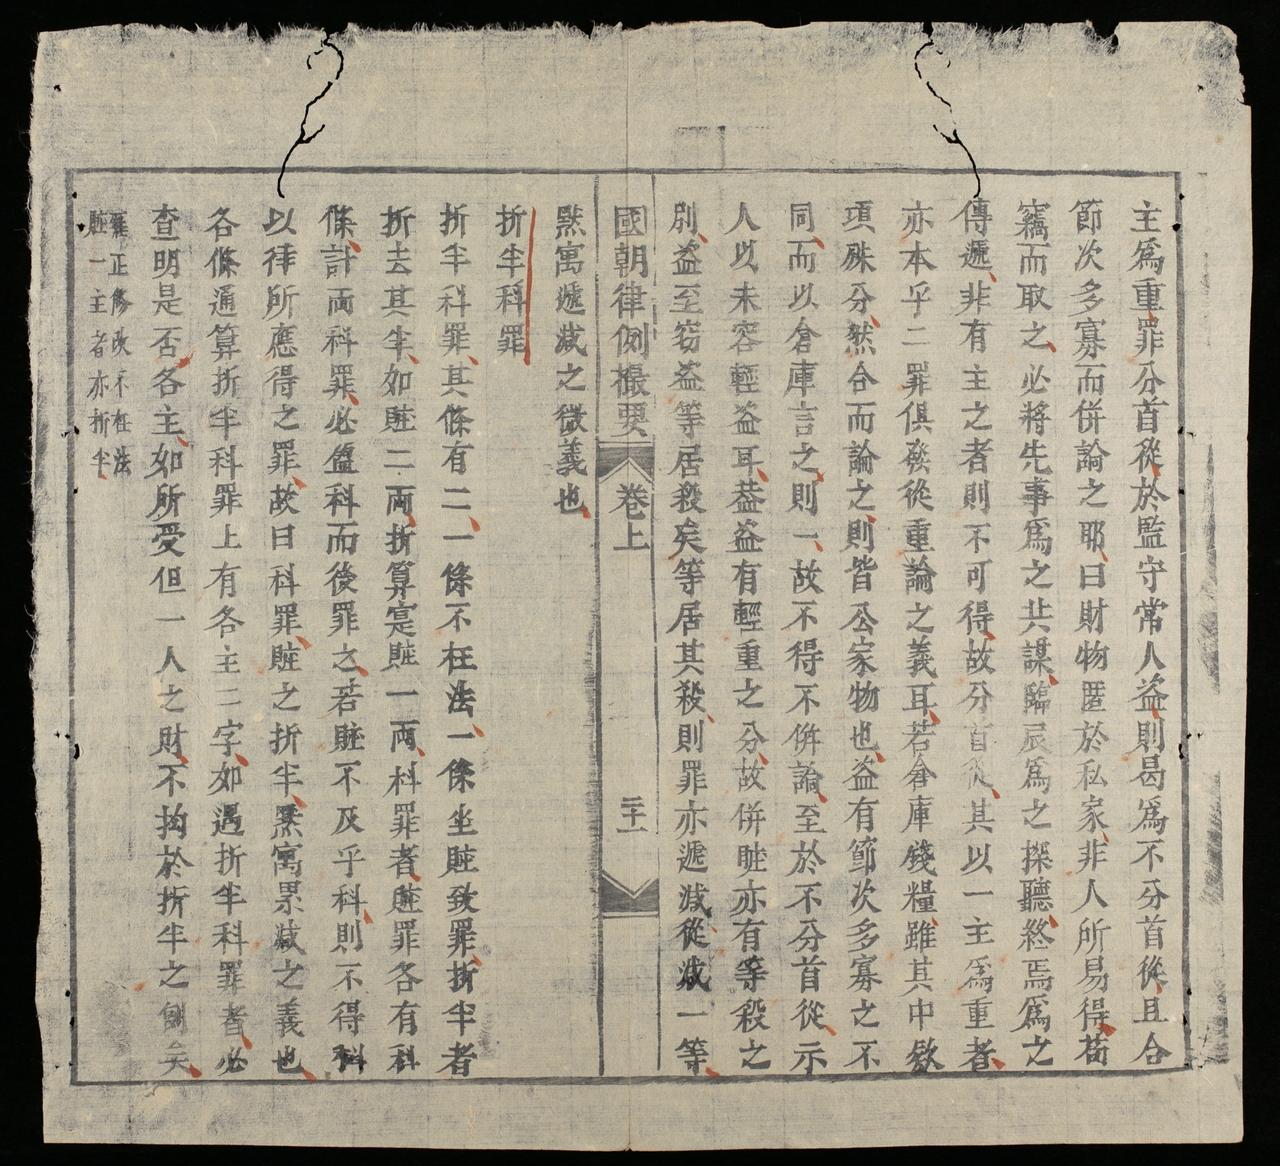 主爲重罪分首從於監守常人盗則曷爲不分首從且合
節次多寡而併論之耶曰財物匿於私家非人所易得苟
竊而取之必將先事爲之共謀臨辰爲之探聽終焉爲之
傳遞非有主之者則不可得故分首從其以一主爲重者
亦本乎二罪俱發從重論之義耳若倉庫錢糧雖其中欵
項殊分然合而論之則皆公家物也盗有節次多寡之不
同而以倉庫言之則一故不得不併論至於不分首從示
人以未容輕盗耳葢盗有輕重之分故併賍亦有等殺之
別盗至窃盗等居殺矣等居其殺則罪亦遞减從减一等
國朝律例撮要 卷上 二十一
黙寓遞减之微義也
折半科罪
折半科罪其條有二一條不枉法一條坐賍致罪折半者
折去其半如賍二兩折算寔賍一兩科罪者賍罪各有科
條計両科罪必盈科而後罪之若賍不及乎科則不得科
以律所應得之罪故曰科罪賍之折半黙寓累减之義也
各條通算折半科罪上有各主二字如遇折半科罪者必
查明是否各主如所受但一人之財不拘於折半之例矣
雍正修改不枉法
賍一主者亦折半